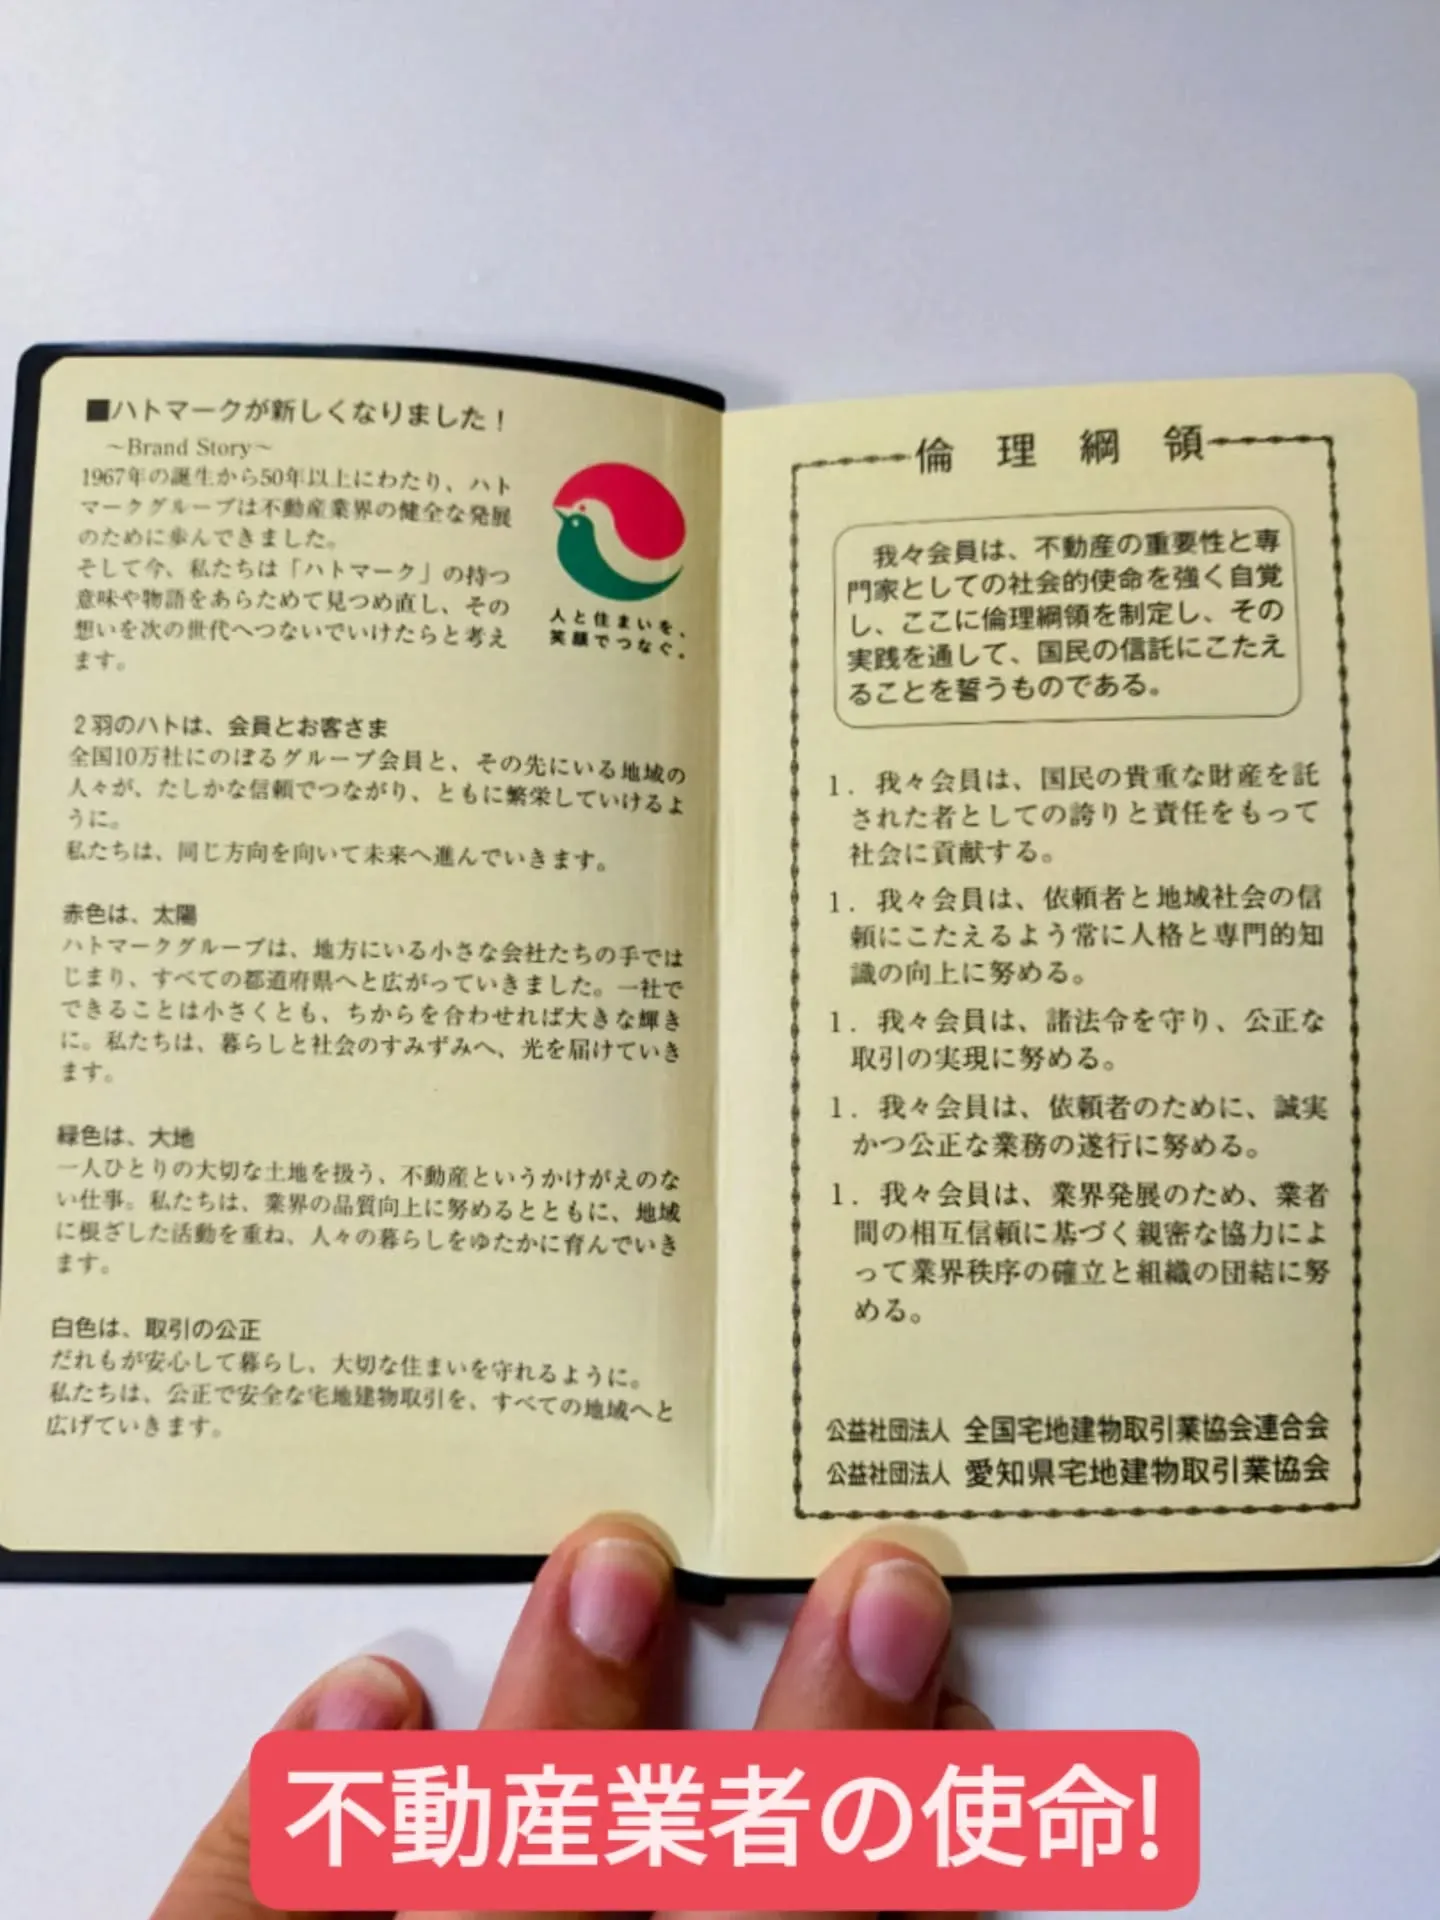 ■ハトマークが新しくなりました!
～Brand Story～
1967年の誕生から50年以上にわたり、ハト
マークグループは不動産業界の健全な発展
のために歩んできました。
そして今、私たちは「ハトマーク」の持つ
意味や物語をあらためて見つめ直し、その
想いを次の世代へつないでいけたらと考え
ます。
人と住まいを、
笑顔でつなぐ。
2羽のハトは、会員とお客さま
全国10万社にのぼるグループ会員と、その先にいる地域の
人々が、たしかな信頼でつながり、ともに繁栄していけるよ
うに。
私たちは、同じ方向を向いて未来へ進んでいきます。
赤色は、太陽
ハトマークグループは、地方にいる小さな会社たちの手では
じまり、すべての都道府県へと広がっていきました。一社で
できることは小さくとも、ちからを合わせれば大きな輝き
に。私たちは、暮らしと社会のすみずみへ、光を届けていき
ます。
緑色は、大地
一人ひとりの大切な土地を扱う、不動産というかけがえのな
い仕事。私たちは、業界の品質向上に努めるとともに、地域
に根ざした活動を重ね、人々の暮らしをゆたかに育んでいき
ます。
白色は、取引の公正
だれもが安心して暮らし、大切な住まいを守れるように。
私たちは、公正で安全な宅地建物取引を、すべての地域へと
広げていきます。
倫理綱領
我々会員は、不動産の重要性と専
門家としての社会的使命を強く自覚
し、ここに倫理綱領を制定し、その
実践を通して、国民の信託にこたえ
ることを誓うものである。
1. 我々会員は、国民の貴重な財産を託
された者としての誇りと責任をもって
社会に貢献する。
1. 我々会員は、依頼者と地域社会の信
頼にこたえるよう常に人格と専門的知
識の向上に努める。
1. 我々会員は、諸法令を守り、公正な
取引の実現に努める。
1. 我々会員は、依頼者のために、誠実
かつ公正な業務の遂行に努める。
1. 我々会員は、業界発展のため、業者
間の相互信頼に基づく親密な協力によ
って業界秩序の確立と組織の団結に努
める。
公益社団法人 全国宅地建物取引業協会連合会
公益社団法人 愛知県宅地建物取引業協会
不動産業者の使命!